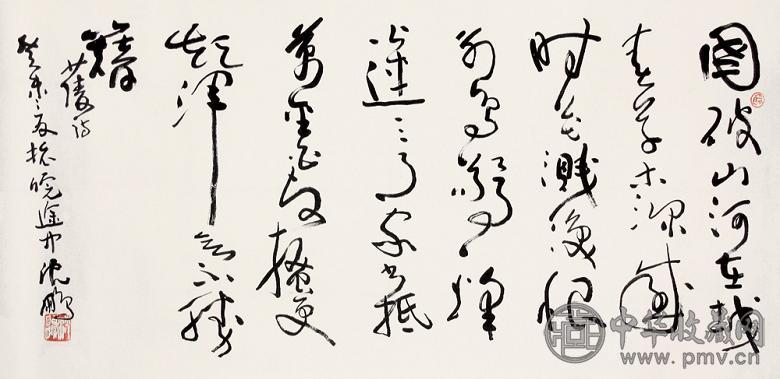 國破山河在城
春草木深感
时花溅淚恨
别鸟惊心烽
火連三月家书抵
萬金白頭搔更
短渾欲不勝
簪
少陵诗
癸未之夏於皖途中沈鹏
中华收藏网
www.pmv.cn